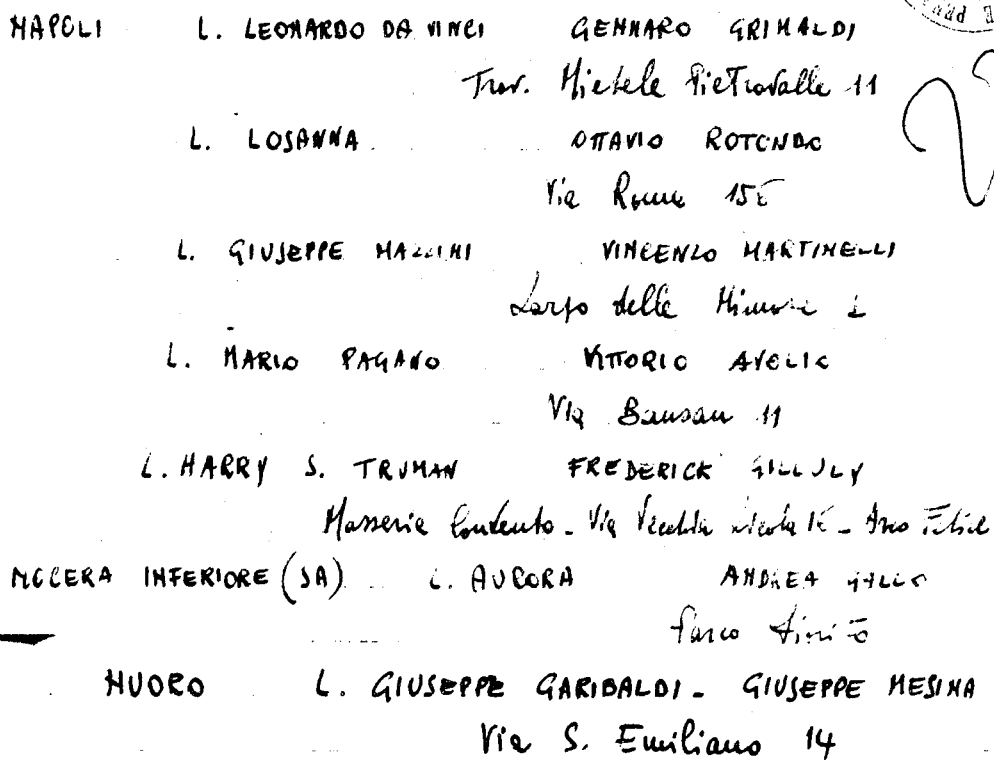 NAPOLI L. LEONARDO DA VINCI GENNARO GRIMALDI
Trav. Michele Pietravalle 11
L. LOSANNA OTTAVIO ROTONDO
Via Roma 156
L. GIUSEPPE MAZZINI VINCENZO MARTINELLI
Largo delle Mimose 1
L. MARIO PAGANO VITTORIO AVELLO
Via Bausan 11
L. HARRY S. TRUMAN FREDERICK GILLULY
Masseria Contento - Via Vecchia - Arco Felice
NOCERA INFERIORE (SA) L. AURORA ANDREA GALLO
Parco
NUORO L. GIUSEPPE GARIBALDI - GIUSEPPE MESINA
Via S. Emiliano 14